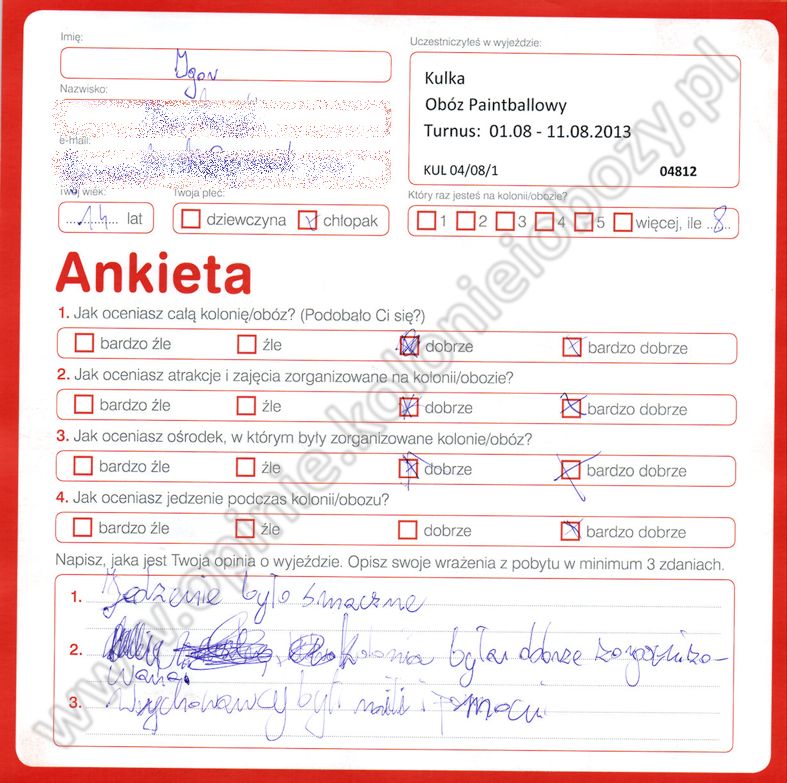 Imię:
Igor
Uczestniczyłeś w wyjeździe:
Kulka
Obóz Paintballowy
Turnus: 01.08 - 11.08.2013
KUL 04/08/1 04812
Nazwisko:
e-mail:
Twój wiek:
14 lat
Twoja płeć:
dziewczyna chłopak
Który raz jesteś na kolonii/obozie?
1 2 3 4 5 więcej, ile ..8..
Ankieta
1. Jak oceniasz całą kolonię/obóz? (Podobało Ci się?)
bardzo źle źle dobrze bardzo dobrze
2. Jak oceniasz atrakcje i zajęcia zorganizowane na kolonii/obozie?
bardzo źle źle dobrze bardzo dobrze
3. Jak oceniasz ośrodek, w którym były zorganizowane kolonie/obóz?
bardzo źle źle dobrze bardzo dobrze
4. Jak oceniasz jedzenie podczas kolonii/obozu?
bardzo źle źle dobrze bardzo dobrze
Napisz, jaka jest Twoja opinia o wyjeździe. Opisz swoje wrażenia z pobytu w minimum 3 zdaniach.
1. Jedzenie było smaczne
2. kolonia była dobrze zorganizo-
wana.
3. Wychowawcy byli mili i pomocni
www.opinie.kolonieiobozy.pl